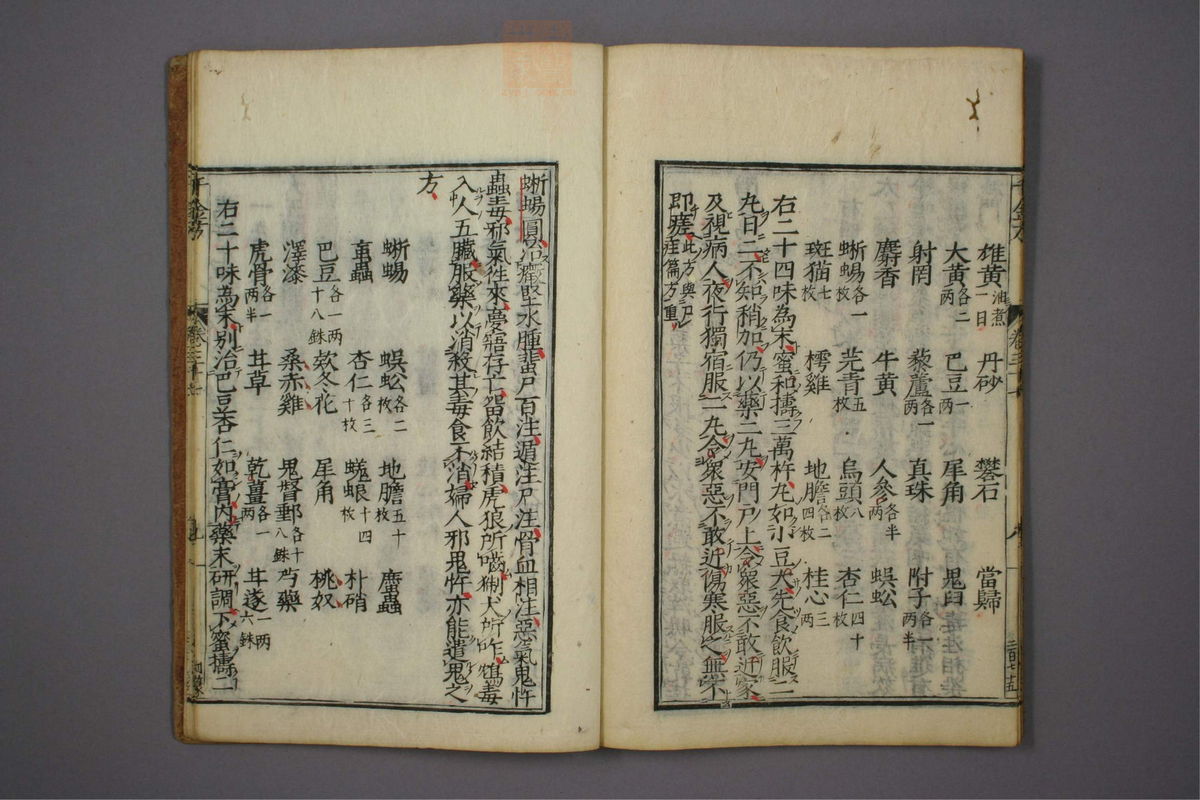 雄黄油煮一日 丹砂 礬石 當歸
大黄各二两 巴豆一两 犀角 鬼臼
射罔 藜蘆各一两 真珠 附子各一两半
麝香 牛黄 人參各半两 蜈蚣
蜥蜴各一枚 芫青五枚 烏頭八枚 杏仁四十枚
斑猫七枚 樗雞 地膽各二四枚 桂心三两
右二十四味為末蜜和擣三萬杵丸如小豆大先食飲服二
丸日二不知稍加仍以藥二丸安門戸上令衆惡不敢近家
及視病人夜行獨宿服一丸令衆惡不敢近傷寒服之無不
即瘥此方與尸疰篇方重
蜥蜴圓治癥堅水腫蜚尸百注遁注尸注骨血相注惡氣鬼忤
蟲毒邪氣往來夢寤存亡留飲結積虎狼所嚙猘犬所咋鴆毒
入人五臓服藥以消殺其毒食不消婦人邪鬼忤亦能遣鬼之
方
蜥蜴 蜈蚣各二枚 地膽五十枚 䗪蟲
蝱蟲 杏仁各三十枚 蜣蜋十四枚 朴硝
巴豆各一两十八銖 欵冬花 犀角 桃奴
澤漆 桑赤雞 鬼督郵各十八銖 芍藥
虎骨各一两半 甘草 乾薑各一两 甘遂一两六銖
右二十味為末別治巴豆杏仁如膏内藥末研調下蜜擣二